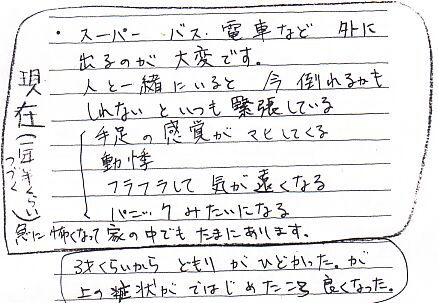 ・スーパー バス・電車など 外に
出るのが 大変です。
人と一緒にいると 今倒れるかも
しれない といつも 緊張している
手足の感覚が マヒしてくる
動悸
フラフラして 気が遠くなる
パニックみたいになる
急に怖くなって家の中でもたまにあります。
現在(一年半くらい)
つづく
3才くらいから どもり がひどかった。が
上の症状がではじめたころ 良くなった。